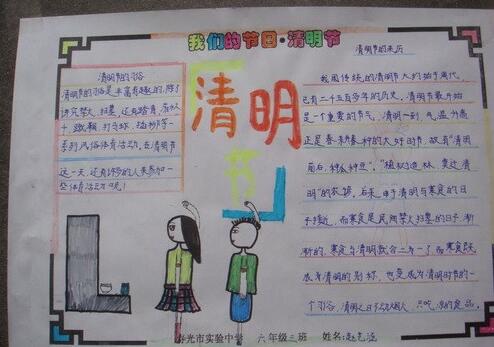 我们的节日·清明节
清明节的习俗
清明节的习俗是丰富有趣的,除了
讲究禁火、扫墓,还有踏青、荡秋
千、蹴鞠、打马球、插柳等一
系列风俗体育活动,在清明节
这一天,还有许多的人来参加一
些体育活动呢!
清明
节
清明节的来历
我国传统的清明节大约始于周代,
已有二千五百多年的历史,清明节最开始
是一个重要的节气,清明一到,气温升高
正是春耕春种的大好时节,故有“清明
前后,种瓜种豆”,“植树造林,莫过清
明”的农谚,后来,由于清明与寒食的日
子接近,而寒食是民间禁火扫墓的日子,渐
渐的,寒食与清明就合二为一了,而寒食既
成为清明的别称,也变成为清明时节的一
个习俗,清明之日不动烟火,只吃凉的食品。
寿光市实验中学 六年级三班 姓名: